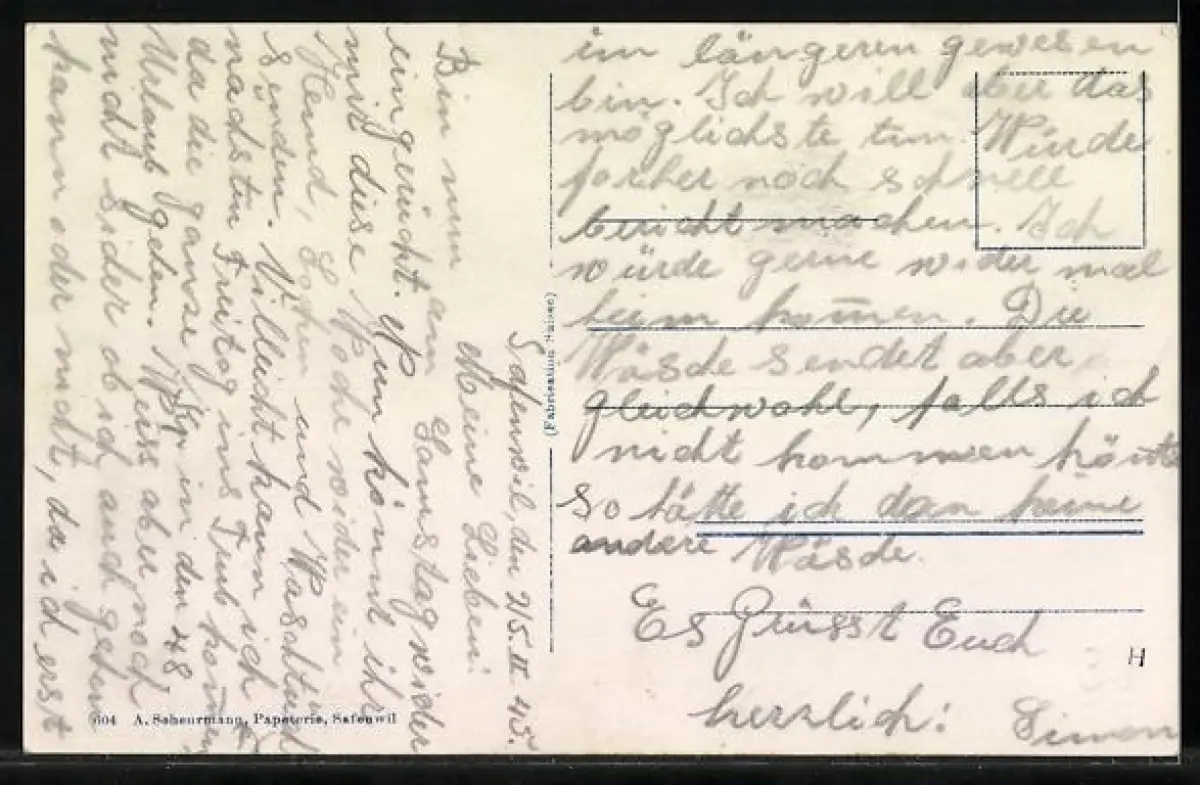 Safenwil, den 25. II. 45.
Meine Lieben!
Bin nun am Samstag wider
eingerückt. Nun könnt ihr
mir diese Woche wider ein
Hemd, Socken und Waschtuch
senden. Villeicht kann ich
nächsten Freitag ins Trub kom̄en
da die ganse Kp. in den 48
Urlaub gehen. Weiss aber noch
nicht sider ob ich auch gehen
kann oder nicht, da ich erst
im längeren gewesen
bin. Ich will aber das
möglichste tun. Würde
forher noch schnell
bericht machen. Ich
würde gerne wider mal
heim kom̄en. Die
Wäsde sendet aber
gleichwohl, falls ich
nicht kommen könte
so hätte ich dan keine
andere Wäsde.
Es Grüsst Euch
herzlich! Simon
(Fabrication Suisse)
604 A. Scheurmann, Papeterie, Safenwil
H